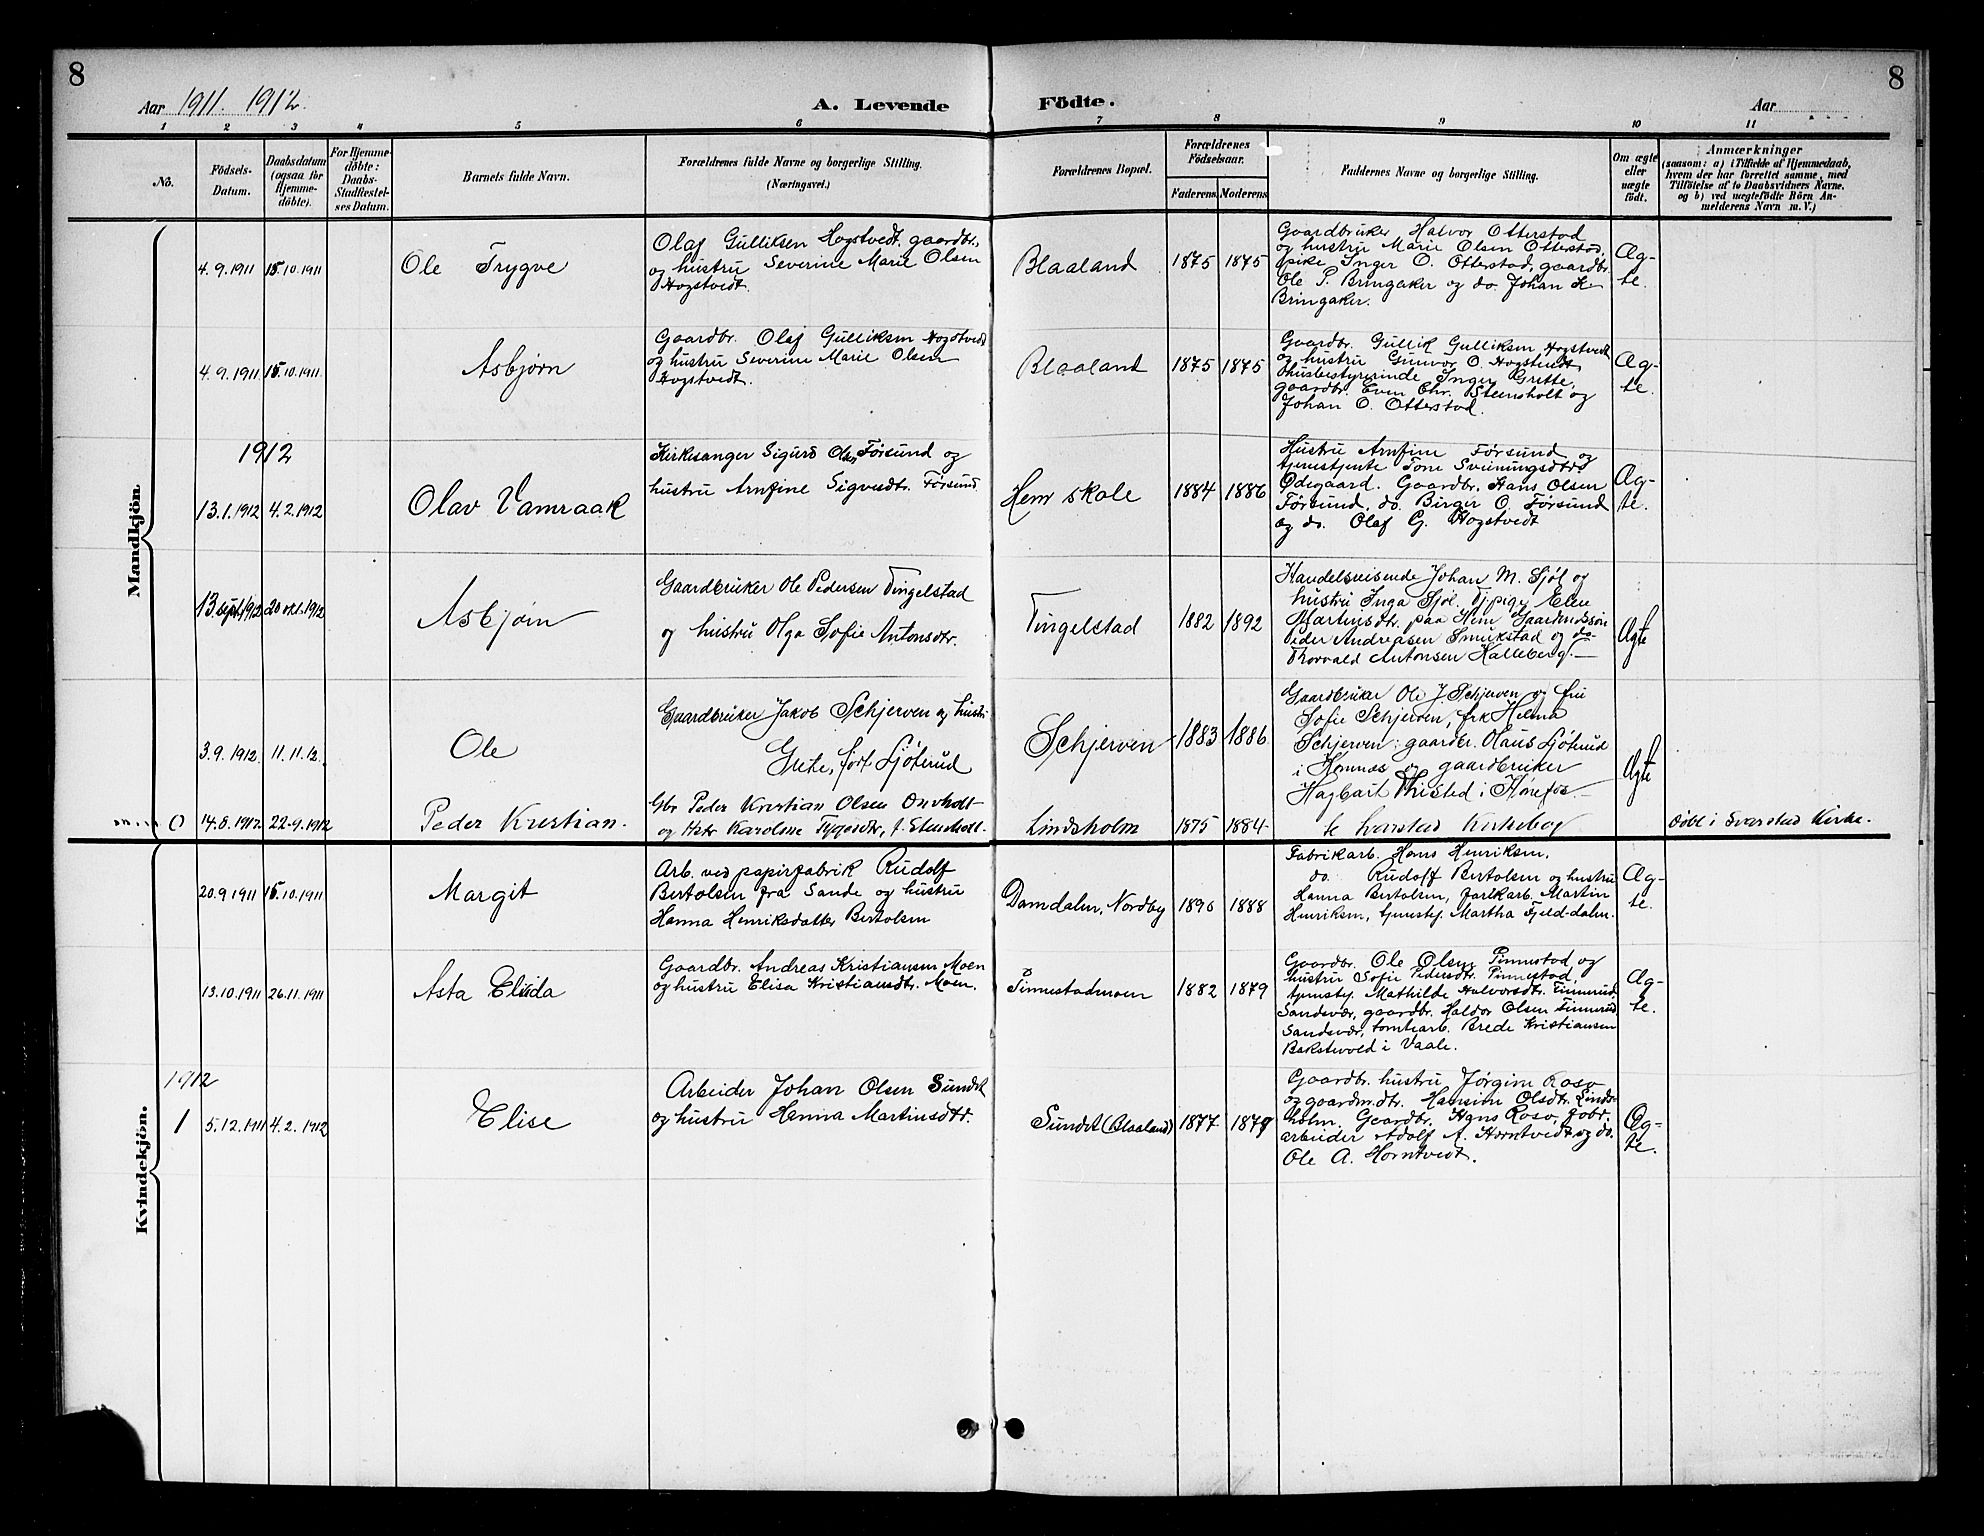 8
8
Aar 1911. 1912.
A. Levende Födte.
Aar
1 2 3 4 5 6 7 8 9 10 11
No.
Födsels-
Datum.
Daabsdatum
(ogsaa for
Hjemme-
döbte).
For Hjemme-
döbte:
Daabs-
Stadfæstel-
ses Datum.
Barnets fulde Navn.
Forældrenes fulde Navne og borgerlige Stilling.
(Næringsvei.)
Forældrenes Bopæl.
Forældrenes
Födselsaar.
Faderens. Moderens.
Faddernes Navne og borgerlige Stilling.
Om ægte
eller
uægte
födt.
Anmærkninger
(saasom: a) i Tilfælde af Hjemmedaab,
hvem der har forrettet samme, med
Tilföielse af to Daabsvidners Navne,
og b) ved uægtefödte Börn An-
melderens Navn m. V.)
Mandkjön.
4.9.1911 15.10.1911
Ole Trygve
Olaf Gulliksen Hogstvedt, gaardbr.,
og hustru Severine Marie Olsen
Hogstvedt.
Blaaland
1875 1875
Gaardbruker Halvor Otterstad
og hustru Marie Olsen Otterstad,
pike Inger O. Otterstad, gaardbr.
Ole P. Bringaker og do. Johan K.
Bringaker.
Æg-
te.
4.9.1911 15.10.1911
Asbjørn
Gaardbr. Olaf Gulliksen Hogstvedt
og hustru Severine Marie Olsen
Hogstvedt.
Blaaland
1875 1875
Gaardbr. Gullik Gulliksen Hogstvedt
og hustru Gunvor O. Hogstvedt,
husbestyrerinde Inger Grette,
gaardbr. Even Chr. Steensholt og
Johan O. Otterstad.
Æg-
te.
1912
13.1.1912 4.2.1912
Olav Vamraak
Kirkesanger Sigurd Olsen Førsund og
hustru Arnfine Sigvesdtr. Førsund.
Hem skole
1884 1886
Hustru Arnfine Førsund og
tjenestjente Tone Sveinungsdatter
Ødegaard. Gaardbr. Hans Olsen
Førsund, do. Birger O. Førsund
og do. Olaf G. Hogstvedt
Æg-
te.
13 sept. 1912 20 okt. 1912
Asbjørn
Gaardbruker Ole Pedersen Tingelstad
og hustru Olga Sofie Antonsdtr.
Tingelstad
1882 1892
Handelsreisende Johan M. Sjøl og
hustru Inga Sjøl. Tj.pige Elen
Martinsdtr. paa Hem Gaardmandssøn
Peder Andreasen Smukstad og do
Thorvald Antonsen Halleberg.
Ægte
3.9.1912. 11.11.12.
Ole
Gaardbruker Jakob Schjerven og hustru
Grete, født Ljøterud
Schjerven
1883 1886
Gaardbruker Ole J. Schjerven og fru
Sofie Schjerven, frk Helma
Schjerven; gaardbr. Olaus Ljøterud
i Hemnæs og gaardbruker
Hagbart Thisted i Hønefos
Ægte
0 14.8.1912 22-9.1912
Peder Kristian.
Gbr Peder Kristian Olsen Omholt
og Hstr Karoline Tygesdtr, f. Stensholt.
Lindsholm
1875 1884
se Svarstad Kirkebog
Døbt i Svarstad Kirke.
Kvindekjön.
20.9.1911 15.10.1911
Margit
Arb. ved papirfabrik Rudolf
Bertolsen fra Sande og hustru
Hanna Henriksdatter Bertolsen
Damdalen, Nordby
1890 1888
Fabrikarb. Hans Henriksen,
do. Rudolf Bertolsen og hustru
Hanna Bertolsen, fabrkarb. Martin
Henriksen, tjenestpj. Martha Fjeld-dalen.
Æg-
te.
13.10.1911 26.11.1911
Asta Elida
Gaardbr. Andreas Kristiansen Moen
og hustru Elisa Kristiansdtr. Moen.
Pinnestadmoen
1882 1879
Gaardbr. Ole Olsen Pinnestad og
hustru Sofie Pedersdtr. Pinnestad,
tjenestpj. Mathilde Halvorsdtr. Finnerud,
Sandsvær, gaardbr. Haldor Olsen Finnerud
Sandsvær, tomtearb. Brede Kristiansen
Bakstevold i Vaale.
Æg-
te.
1912
1 5.12.1911 4.2.1912
Elise
Arbeider Johan Olsen Sundet
og hustru Hanna Martinsdtr.
Sundet (Blaaland)
1877 1879
Gaardbr. hustru Jørgine Roso
og gaardm.dtr. Hansine Olsdtr. Linds-
holm. Gaardbr. Hans Roso, fabr.
arbeider Adolf A. Horntvedt og do.
Ole A. Horntvedt.
Æg-
te.